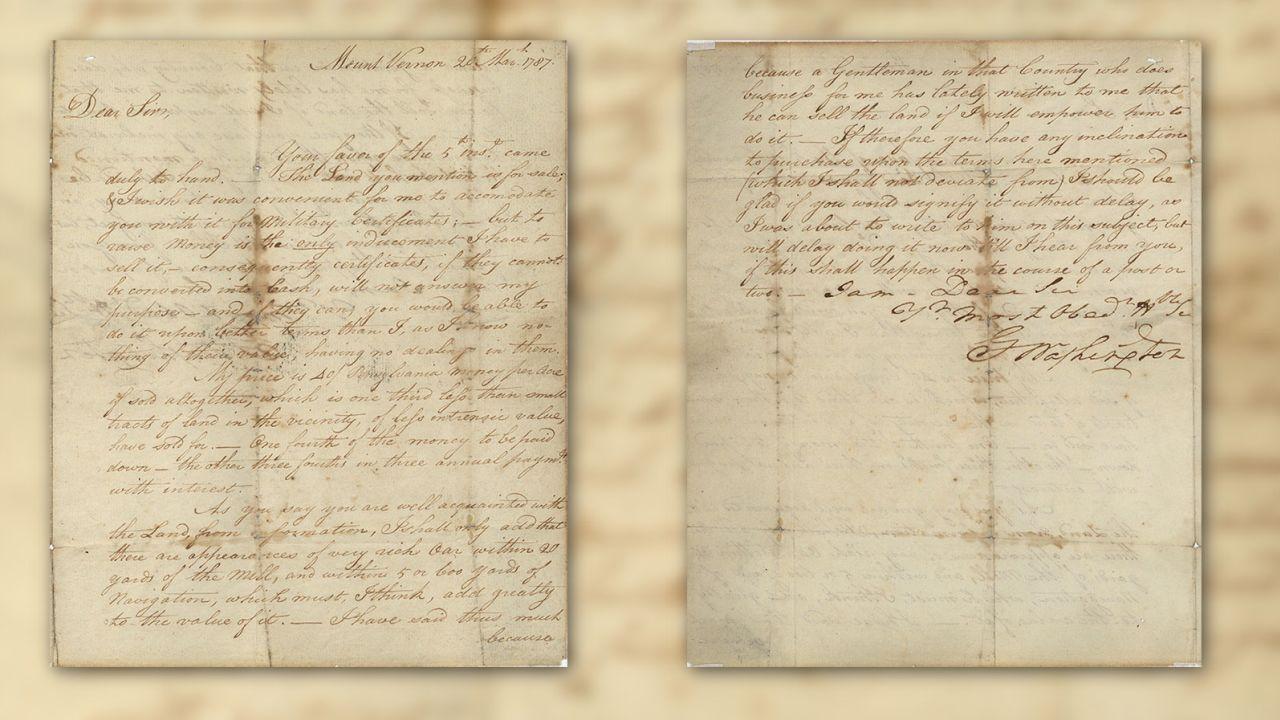 Mount Vernon 20th Mar.h 1787.
Dear Sir,
Your favor of the 5th inst. came
duly to hand. — The Land you mention is for sale;
& I wish it was convenient for me to accomodate
you with it for Military Certificates; — but to
raise money is the only inducement I have to
sell it, — consequently certificates, if they cannot
be converted into Cash, will not answer my
purpose — and if they can, you would be able to
do it upon better terms than I, as I know no-
thing of their value; having no dealings in them.
My price is 40/ Pensylvania money per Acre
if sold altogither, which is one third less than small
tracts of land in the vicinity, of less intrensic value,
have sold for. — One fourth of the money to be paid
down — the other three fourths in three annual paymts
with interest.
As you say you are well acquainted with
the Land, from information, I shall only add that
there are appearances of very rich Oar within 20
yards of the Mill, and within 5 or 600 yards of
Navigation, which must, I think, add greatly
to the value of it. — I have said thus much
because
because a Gentleman in that Country who does
business for me has lately written to me that
he can sell the land if I will empower him to
do it. — If therefore you have any inclination
to purchase upon the terms here mentioned
(which I shall not deviate from) I should be
glad if you would signify it without delay, as
I was about to write to him on this subject, but
will delay doing it now till I hear from you,
if this shall happen in the course of a post or
two. — I am — Dear Sir
Yr Most Obedt
G Washington